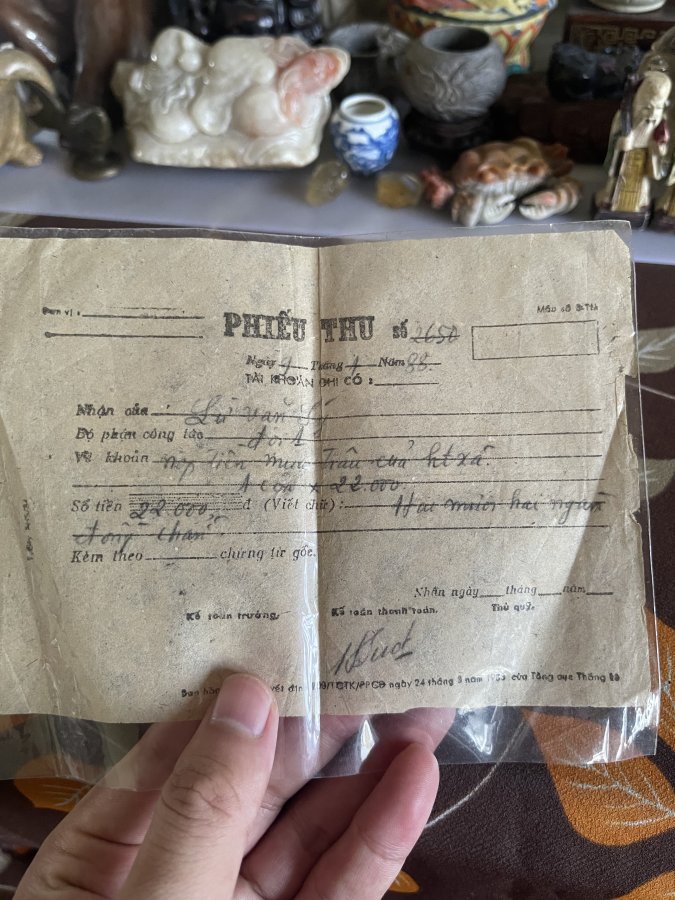 Đơn vị :
Mẫu số
PHIẾU THU số 2650
Ngày 9 Tháng 4 Năm 88.
TÀI KHOẢN GHI CÓ :
Nhận của Lữ văn
Bộ phận công tác đội 1
Về khoản nộp tiền mua trâu của htxã.
1 con x 22.000
Số tiền 22000 đ (Viết chữ) : Hai mươi hai ngàn
đồng chẵn
Kèm theo chứng từ gốc.
Nhận ngày tháng năm
Kế toán trưởng, Kế toán thanh toán, Thủ quỹ,
Ban hà /TCTK/PPCĐ ngày 24 tháng của Tổng cục Thống kê